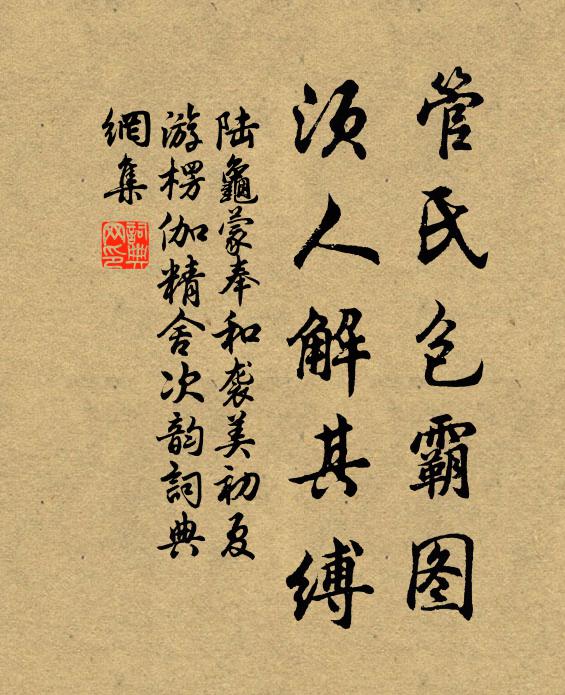 管氏包霸图
须人解其缚
陆龜蒙奉和袭美初夏
游楞伽精舍次韵詞典
網集
詞典
网印